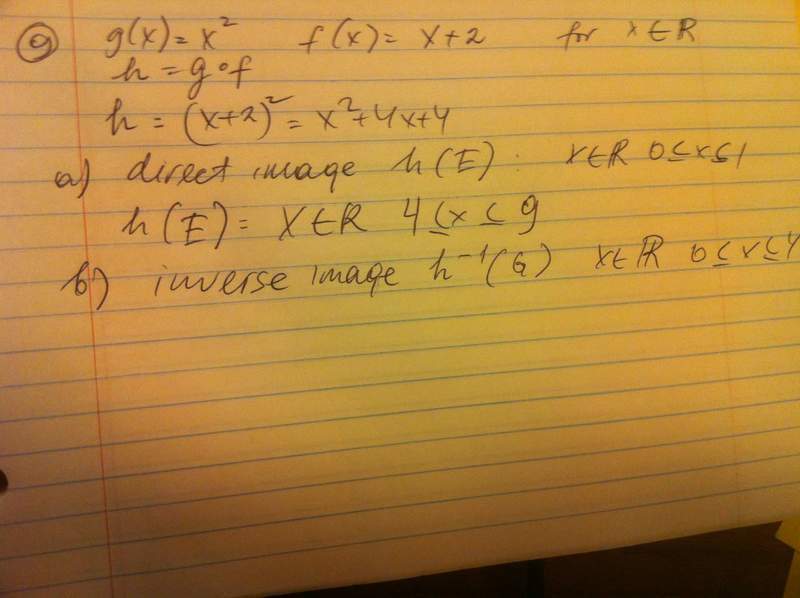 ⑨ g(x) = x² f(x) = x+2 for x∈ℝ
h = g∘f
h = (x+2)² = x²+4x+4
a) direct image h(E): x∈ℝ 0≤x≤1
h(E) = x∈ℝ 4≤x≤9
b) inverse image h⁻¹(G) x∈ℝ 0≤x≤4